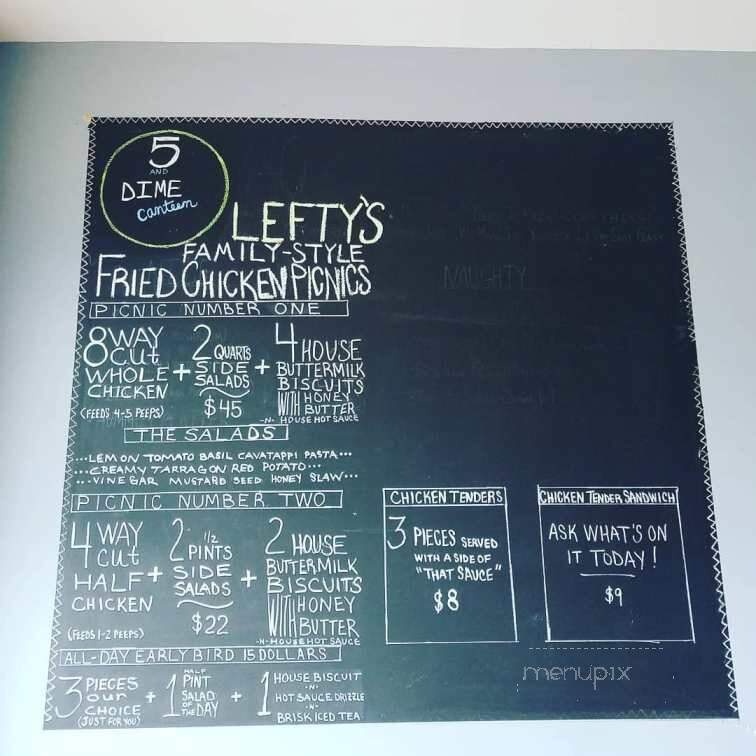 5
AND
DIME
canteen
LEFTY'S
FAMILY-STYLE
FRIED CHICKEN PICNICS
PICNIC NUMBER ONE
8 WAY CUT WHOLE CHICKEN
(FEEDS 4-5 PEEPS)
+
2 QUARTS SIDE SALADS
$45
+
4 HOUSE BUTTERMILK BISCUITS WITH HONEY BUTTER
-N- HOUSE HOT SAUCE
THE SALADS
...LEMON TOMATO BASIL CAVATAPPI PASTA...
...CREAMY TARRAGON RED POTATO...
...VINEGAR MUSTARD SEED HONEY SLAW...
PICNIC NUMBER TWO
4 WAY CUT HALF CHICKEN
(FEEDS 1-2 PEEPS)
+
2 1/2 PINTS SIDE SALADS
$22
+
2 HOUSE BUTTERMILK BISCUITS WITH HONEY BUTTER
-N- HOUSE HOT SAUCE
ALL-DAY EARLY BIRD 15 DOLLARS
3 PIECES OUR CHOICE
(JUST FOR YOU)
+
1 HALF PINT SALAD OF THE DAY
+
1 HOUSE BISCUIT
-N-
HOT SAUCE DRIZZLE
-N-
BRISK ICED TEA
NAUGHTY
CHICKEN TENDERS
3 PIECES SERVED
WITH A SIDE OF
"THAT SAUCE"
$8
CHICKEN TENDER SANDWICH
ASK WHAT'S ON
IT TODAY!
$9
menupix